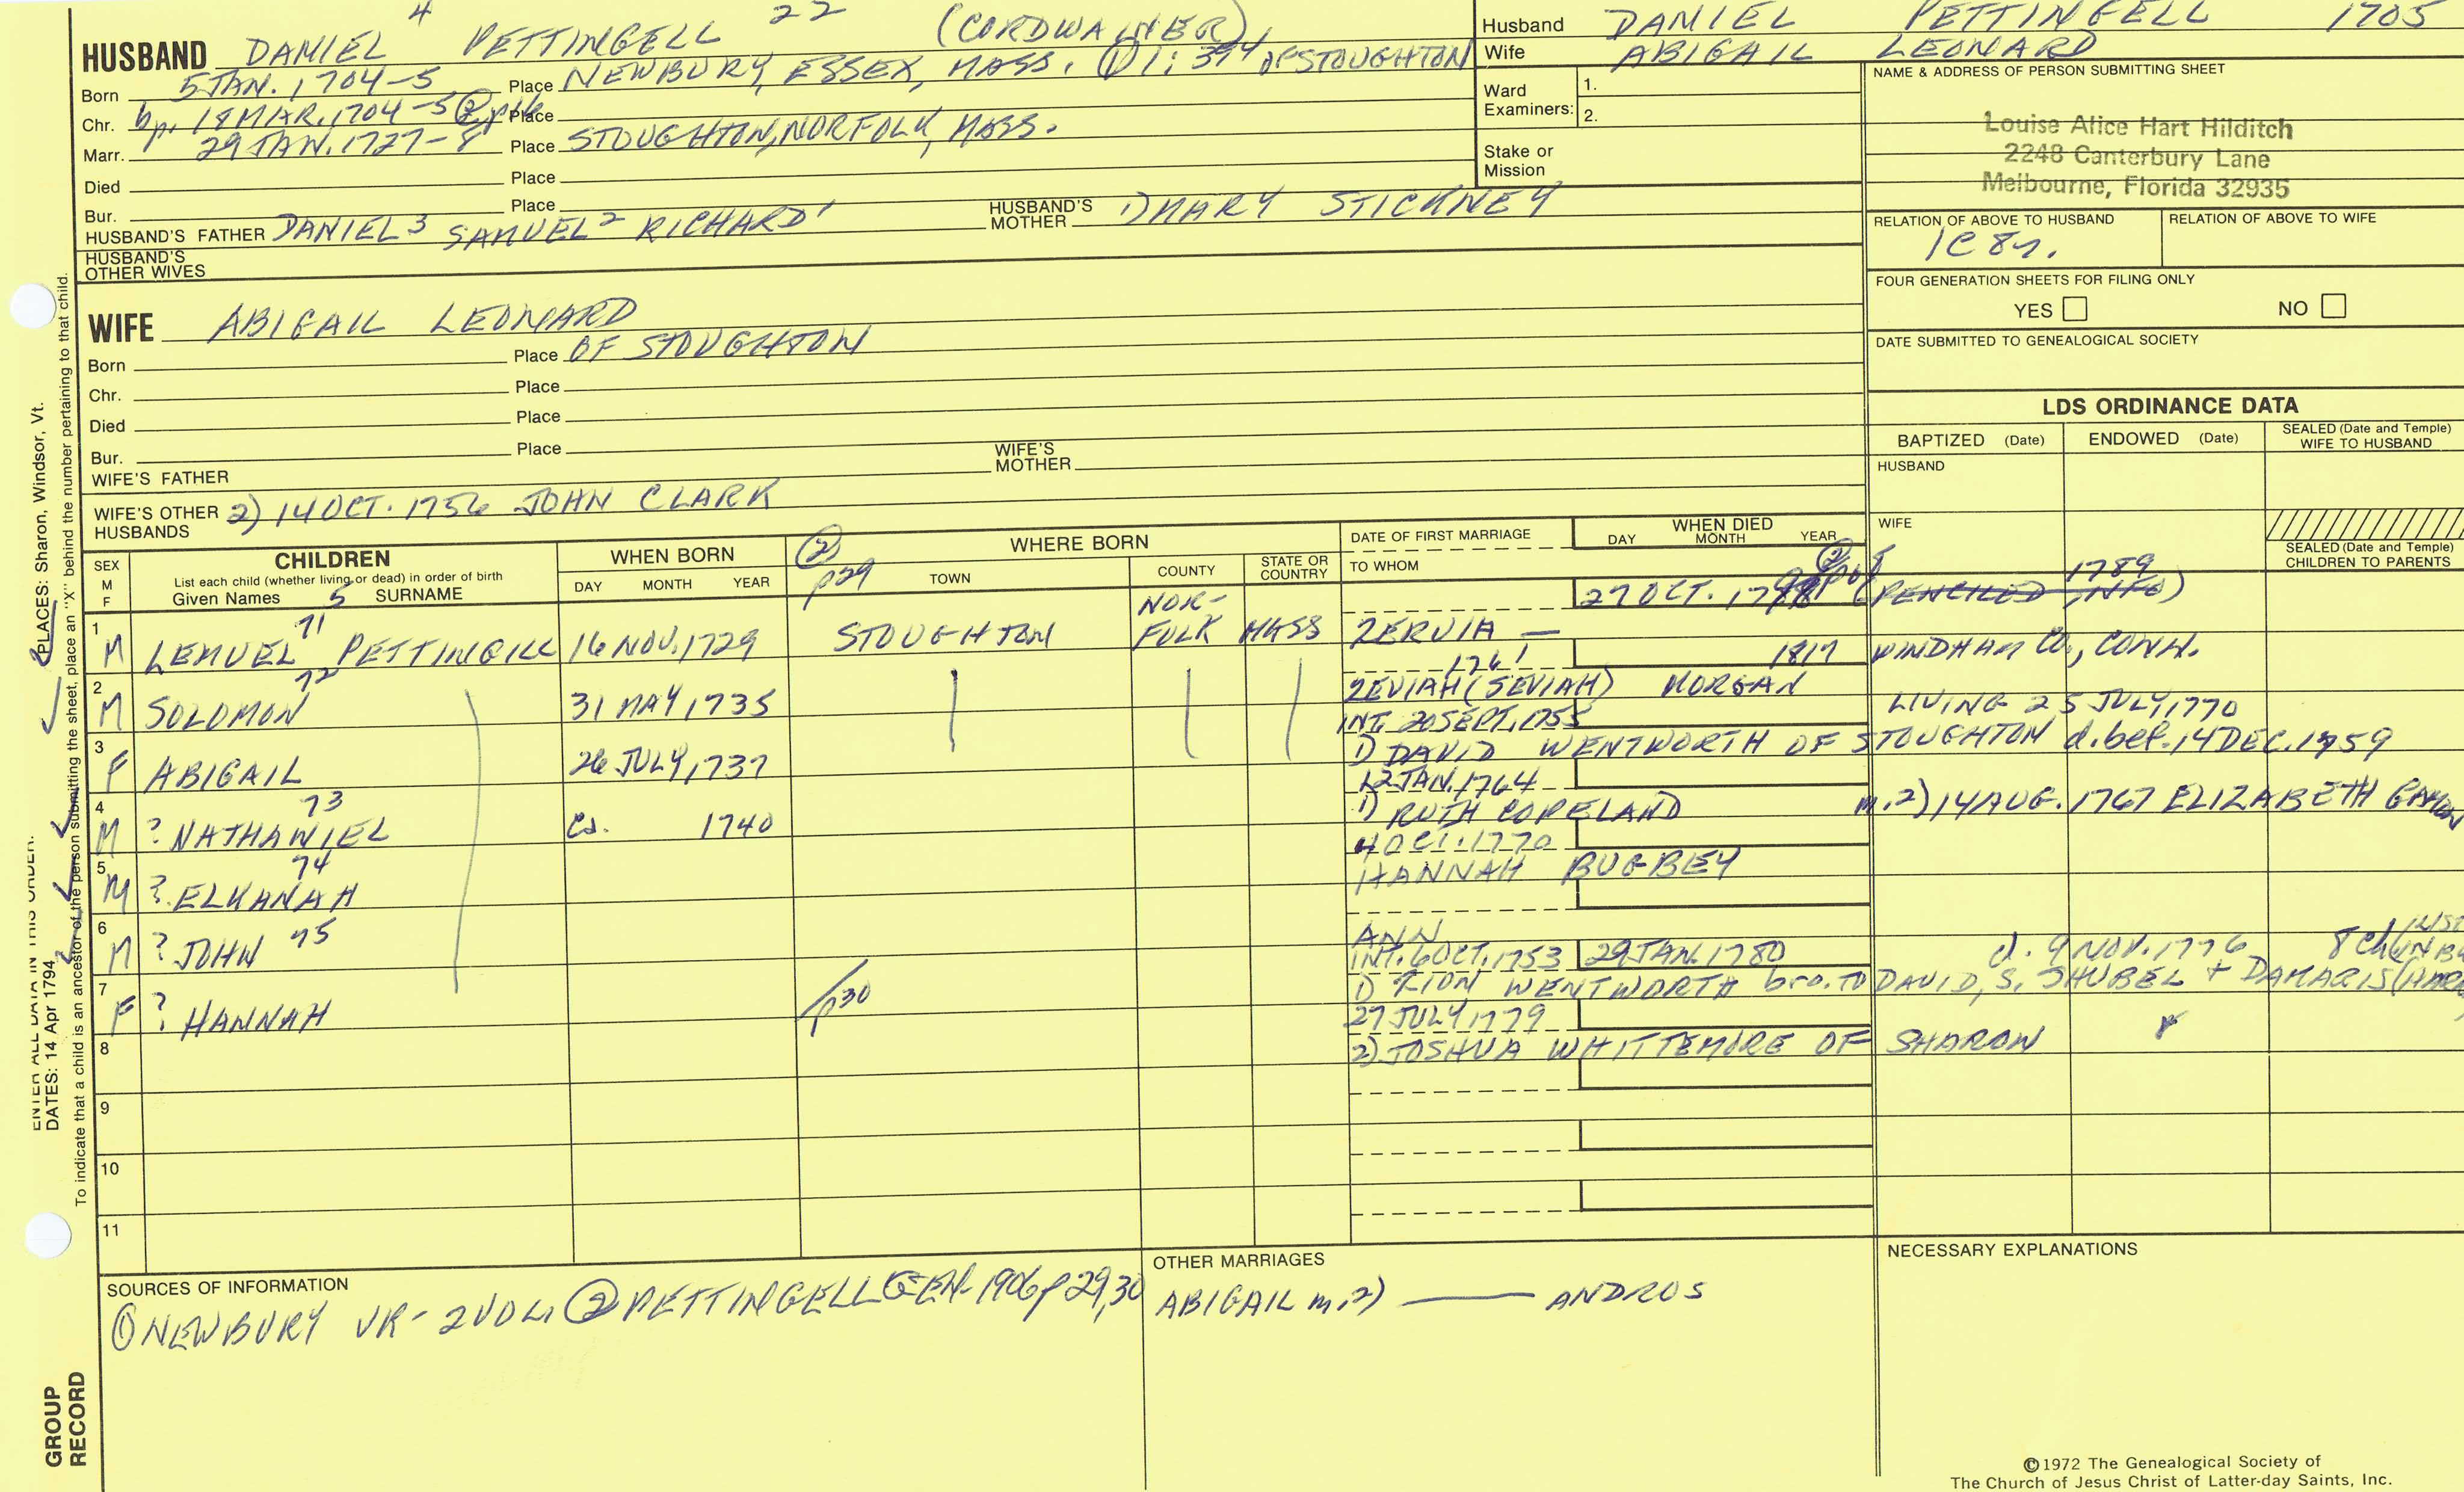 4 22 (CORDWAINER)
HUSBAND DANIEL PETTINGELL
Born 5 JAN. 1704-5 Place NEWBURY, ESSEX, MASS. ① 1: 394 OF STOUGHTON
Chr. bp. 18 MAR. 1704-5 ② Place
Marr. 29 JAN. 1727-8 Place STOUGHTON, NORFOLK, MASS.
Died Place
Bur. Place
HUSBAND'S FATHER DANIEL³ SAMUEL² RICHARD¹ HUSBAND'S MOTHER 1) MARY STICKNEY
HUSBAND'S OTHER WIVES
Husband DANIEL PETTINGELL 1705
Wife ABIGAIL LEONARD
Ward Examiners: 1.
2.
Stake or Mission
NAME & ADDRESS OF PERSON SUBMITTING SHEET
Louise Alice Hart Hilditch
2248 Canterbury Lane
Melbourne, Florida 32935
RELATION OF ABOVE TO HUSBAND RELATION OF ABOVE TO WIFE
1C 8r.
FOUR GENERATION SHEETS FOR FILING ONLY
YES NO
DATE SUBMITTED TO GENEALOGICAL SOCIETY
WIFE ABIGAIL LEONARD
Born Place OF STOUGHTON
Chr. Place
Died Place
Bur. Place
WIFE'S FATHER WIFE'S MOTHER
WIFE'S OTHER HUSBANDS 2) 14 OCT. 1756 JOHN CLARK
LDS ORDINANCE DATA
BAPTIZED (Date) ENDOWED (Date) SEALED (Date and Temple) WIFE TO HUSBAND
HUSBAND
WIFE
SEALED (Date and Temple) CHILDREN TO PARENTS
SEX M F
CHILDREN
List each child (whether living or dead) in order of birth
Given Names 5 SURNAME
WHEN BORN
DAY MONTH YEAR
② p29
WHERE BORN
TOWN COUNTY STATE OR COUNTRY
DATE OF FIRST MARRIAGE
TO WHOM
WHEN DIED
DAY MONTH YEAR
27 OCT. ② 1789
(PENCILED INFO)
1 M LEMUEL 71 PETTINGILL 16 NOV. 1729 STOUGHTON NOR-FOLK MASS ZERVIA —
1761 1817 WINDHAM CO., CONN.
2 M SOLOMON 72 31 MAY, 1735 ZEVIAH (SEVIAH) MORGAN
INT. 20 SEPT. 1755 LIVING 25 JULY, 1770
3 F ABIGAIL 26 JULY, 1737 1) DAVID WENTWORTH OF STOUGHTON d. bef. 14 DEC. 1759
12 JAN. 1764
4 M ? NATHANIEL 73 Ca. 1740 1) RUTH COPELAND m. 2) 14 AUG. 1767 ELIZABETH
4 OCT. 1770
5 M ? ELKANAH 74 HANNAH BUGBEY
6 M ? JOHN 75 ANN
INT. 6 OCT. 1753 29 JAN. 1780 d. 9 NOV. 1776 8 ch
7 F ? HANNAH p30 1) ZION WENTWORTH bro. TO DAVID, S. SHUBEL + DAMARIS
27 JULY, 1779
8 2) JOSHUA WHITTEMORE OF SHARON
9
10
11
SOURCES OF INFORMATION
① NEWBURY VR- 2 VOL. ② PETTINGELL GEN- 1906 p 29,30
OTHER MARRIAGES
ABIGAIL m. 2) — ANDROS
NECESSARY EXPLANATIONS
©1972 The Genealogical Society of
The Church of Jesus Christ of Latter-day Saints, Inc.
ENTER ALL DATA IN THIS ORDER:
DATES: 14 Apr 1794 PLACES: Sharon, Windsor, Vt.
To indicate that a child is an ancestor of the person submitting the sheet, place an "X" behind the number pertaining to that child.
GROUP RECORD